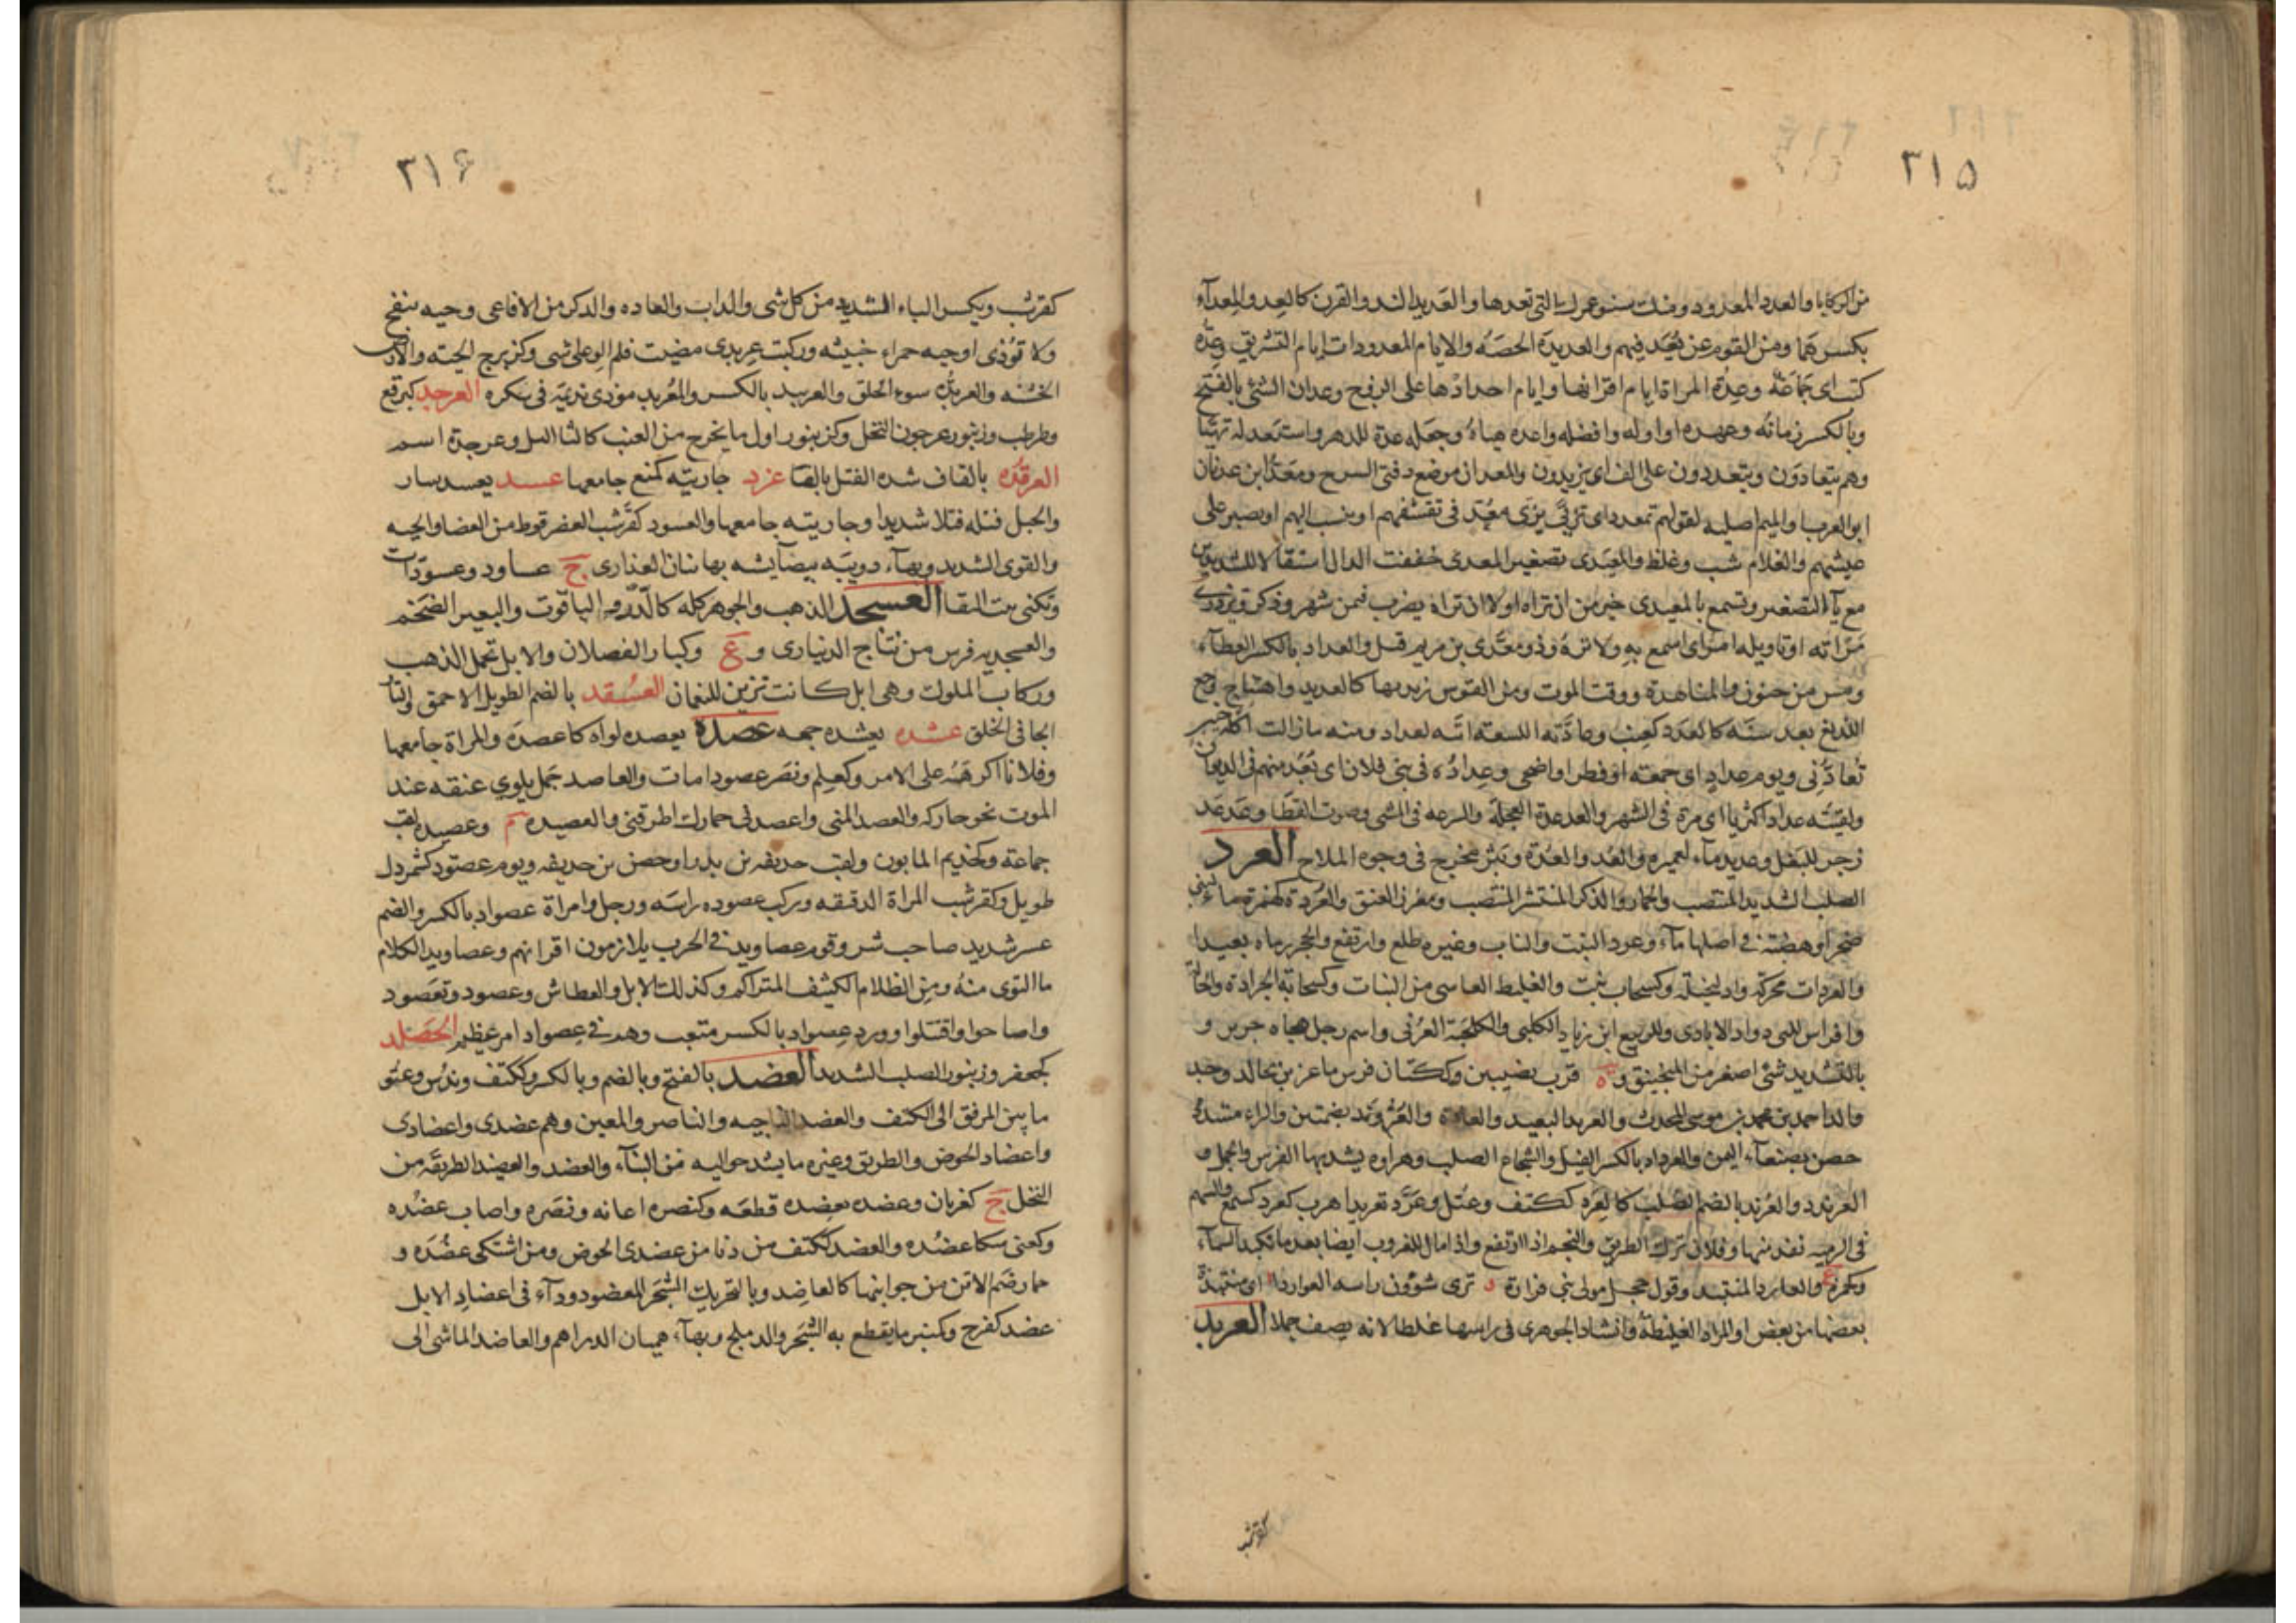 ٣١۵
من الركايا والعدد المعدود ومنك سنو عمرك التي تعدها والعديد الند والقرن كالعد والعداء
بكسرهما ومن القوم من يعد فيهم والعديدة الحصه والايام المعدودات ايام التشريق وعدة
كتب اى جماعة وعدة المراة ايام اقرائها وايام احدادها على الزوج وعدان الشئ بالفتح
وبالكسر زمانه وعهده او اوله وافضله واعده هياه وجعله عدة للدهر واستعد له تهيئا
وهم يتعادون ويتعددون على الف اى يزيدون والمعدان موضع دفتى السرج ومعد ابن عدنان
ابو العرب والميم اصليه لقولهم تمعدد اى تزيى بزى معد فى تقشفهم او ينسب اليهم او يصبر على
عيشهم والغلام شب وغلظ والمعيدى تصغير المعدى خففت الدال استثقالا للتشديدين
مع ياء التصغير وتسمع بالمعيدى خير من ان تراه او لا ان تراه يضرب فيمن شهر وذكر وتزدرى
مراته او تاويله امر اى اسمع به ولا تره وذو معدى بن مريم قيل والعداد بالكسر العطاء
ومس من جنون والمناهدة ووقت الموت ومن القوس رنينها كالعديد واهتياج وجع
اللديغ بعد سنه كالعدد كعنب وعادته اللسعة اتته لعداد ومنه مازالت اكلة خيبر
تعادنى ويوم عداد اى جمعة او فطر او اضحى وعداده فى بنى فلان اى يعد منهم فى الديوان
ولقيته عداد الثريا اى مرة فى الشهر والعدعدة العجلة والسرعه فى المشى وصوت القطا وعدعد
زجر للبغل وعديد ماء لعميرة والعد والعدة وبثر يخرج فى وجوه الملاح العرد
الصلب الشديد المنتصب والحمار والذكر المنتشر المنتصب ومغرز العنق والعردة كهمزة ماء لبنى
صخر او هضبة فى اصلها ماء وعرد النبت والناب وغيره طلع وارتفع والحجر رماه بعيدا
والعردات محركة واد لبجيلة وكسحاب نبت والغليظ العاسى من النبات وكسحابة الجرادة والحالة
وافراس للبى دواد الايادى وللربيع ابن زياد الكلبى والكلحبة العرنى واسم رجل هجاه جرير و
بالتشديد شئ اصغر من المنجنيق وة قرب نصيبين وككتان فرس ماعز بن مجالد وجد
والد احمد بن محمد بن موسى المحدث والعريد البعيد والعادة والعروند بضمتين والراء مشددة
حصن بصنعاء اليمن والعرداد بالكسر الفيل والشجاع الصلب وهراوه يشد بها الفرس والجمل و
العرندد والعرند بالضم الصلب كالعرد ككتف وعتل وعرد تعريدا هرب كعرد كسمع والسهم
فى الرميه نفذ منها وفلان ترك الطريق والنجم اذا ارتفع واذا مال للغروب ايضا بعد ما تكبد السماء
وكحمزة ع والعارد المنتبذ وقول حجل مولى بنى فزارة د ترى شؤون راسه العواردا اى منتبذة
بعضها من بعض او المراد الغليظة وانشاد الجوهرى فى راسها غلط لانه يصف جملا العربد
كقرشب
٣١۶
كقرشب ويكسر الباء الشديد من كل شى والداب والعاده والذكر من الافاعى وحيه تنفخ
ولا تؤذى او حيه حمراء خبيثه وركبت عربدى مضيت فلم الو على شى وكزبرج الحيته والارض
الخشنه والعربدة سوء الخلق والعربيد بالكسر والمعربد مؤذى نديمه فى سكره العرجد كبرقع
وطرطب وزنبور عرجون النخل وكزنبور اول ما يخرج من العنب كالثاليل وعرجدة اسم
العرقدة بالقاف شده الفتل بالقا عزد جاريته كمنع جامعها عسد يعسد سار
والحبل فتله فتلا شديدا وجاريته جامعها والعسود كقرشب العضرفوط من العضا والحيه
والقوى الشديد وبهاء دويبه بيضا يشبه بها بنان العذارى ج عساود وعسودات
وتكنى بنت النقا العسجد الذهب والجوهر كله كالدر والياقوت والبعير الضخم
والعسجديه فرس من نتاج الدينارى و ع وكبار الفصلان والابل تحمل الذهب
وركاب الملوك وهى ابل كانت تزين للنعمان العسقد بالضم الطويل الاحمق والتار
الجافى الخلق عشده يعشده جمعه عصده يعصده لواه كاعصده والمراة جامعها
وفلانا اكرهه على الامر وكعلم ونصر عصودا مات والعاصد جمل يلوى عنقه عند
الموت نحو حاركه والعصد المنى واعصدنى حمارك اطرقنى والعصيده م وعصيد لقب
جماعة وكحذيم المابون ولقب حذيفه بن بدر او حصن بن حذيفه ويوم عصود كشمردل
طويل وكقرشب المراة الدقيقه وركب عصوده راسه ورجل وامراة عصواد بالكسر والضم
عسر شديد صاحب شر وقوم عصاويد فى الحرب يلازمون اقرانهم وعصاويد الكلام
ما التوى منه ومن الظلام الكثيف المتراكم وكذلك الابل والعطاش وعصود وتعصود
واصاحوا واقتتلوا وورد عصواد بالكسر متعب وهم فى عصواد امر عظيم العصلد
كجعفر وزنبور الصلب الشديد العضد بالفتح وبالضم وبالكسر وككتف وندس وعنق
ما بين المرفق الى الكتف والعضد الناحيه والناصر والمعين وهم عضدى واعضادى
واعضاد الحوض والطريق وغيره ما يشد حواليه من البناء والعضد والعضيد الطريقه من
النخل ج كغربان وعضده يعضده قطعه وكنصره اعانه ونصره واصاب عضده
وكعنى شكا عضده والعضد ككتف من دنا من عضدى الحوض ومن اشتكى عضده و
حمار ضم الاتن من جوانبها كالعاضد وبالتحريك الشجر المعضود وداء فى اعضاد الابل
عضد كفرح وكمنبر ما يقطع به الشجر والدملج وبهاء هميان الدراهم والعاضد الماشى الى